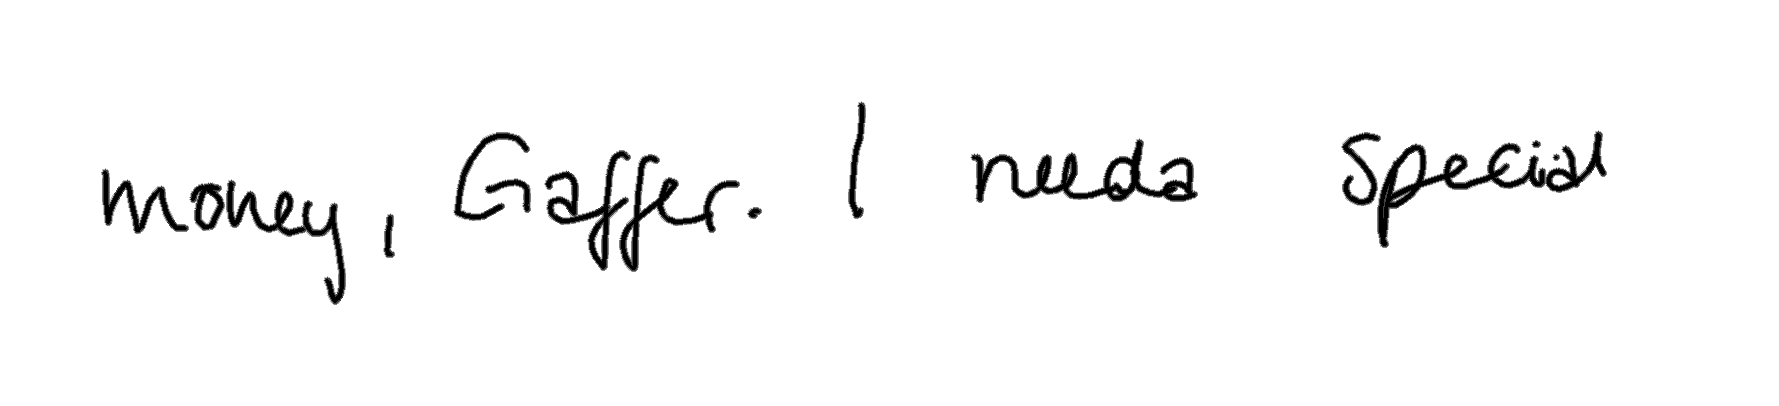 money, Gaffer. I need a special